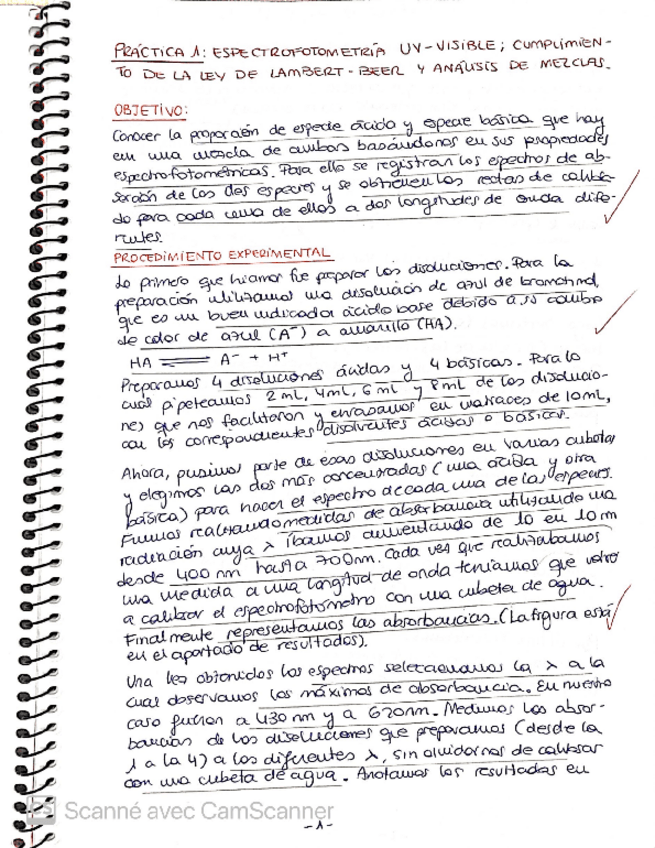 PRÁCTICA 1: ESPECTROFOTOMETRÍA UV-VISIBLE; CUMPLIMIEN-
TO DE LA LEY DE LAMBERT-BEER Y ANÁLISIS DE MEZCLAS.
OBJETIVO:
Conocer la proporción de especie ácida y especie básica que hay
en una mezcla de ambas basándonos en sus propiedades
espectrofotométricas. Para ello se registran los espectros de ab-
sorción de las dos especies y se obtienen las rectas de calibra-
do para cada una de ellas a dos longitudes de onda dife-
rentes.
PROCEDIMIENTO EXPERIMENTAL
Lo primero que hicimos fue preparar las disoluciones. Para la
preparación utilizamos una disolución de azul de bromotimol,
que es un buen indicador ácido base debido a su cambio
de color de azul (A⁻) a amarillo (HA).
HA ⇌ A⁻ + H⁺
Preparamos 4 disoluciones ácidas y 4 básicas. Para lo
cual pipeteamos 2 mL, 4mL, 6 mL y 8 mL de las disolucio-
nes que nos facilitaron y enrasamos en matraces de 10mL,
con los correspondientes disolventes ácidos o básicos.
Ahora, pusimos parte de esas disoluciones en varias cubetas
y elegimos las dos más concentradas (una ácida y otra
básica) para hacer el espectro de cada una de las especies.
Fuimos realizando medidas de absorbancia utilizando una
radiación cuya λ íbamos aumentando de 10 en 10 nm
desde 400 nm hasta 700nm. Cada vez que realizábamos
una medida a una longitud de onda teníamos que volver
a calibrar el espectrofotómetro con una cubeta de agua.
Finalmente representamos las absorbancias. (La figura está
en el apartado de resultados).
Una vez obtenidos los espectros seleccionamos la λ a la
cual observamos los máximos de absorbancia. En nuestro
caso fueron a 430 nm y a 620nm. Medimos las absor-
bancias de las disoluciones que preparamos (desde la
1 a la 4) a las diferentes λ, sin olvidarnos de calibrar
con una cubeta de agua. Anotamos los resultados en
CS Scanné avec CamScanner
-1-